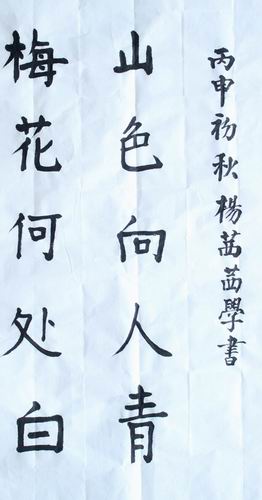 梅花何处白
山色向人青
丙申初秋楊茜茜學書